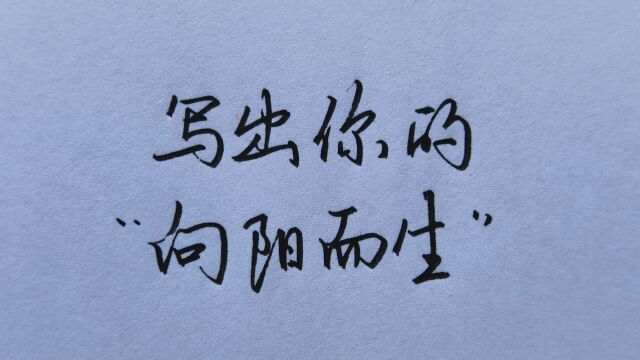 写出你的
“向阳而生”